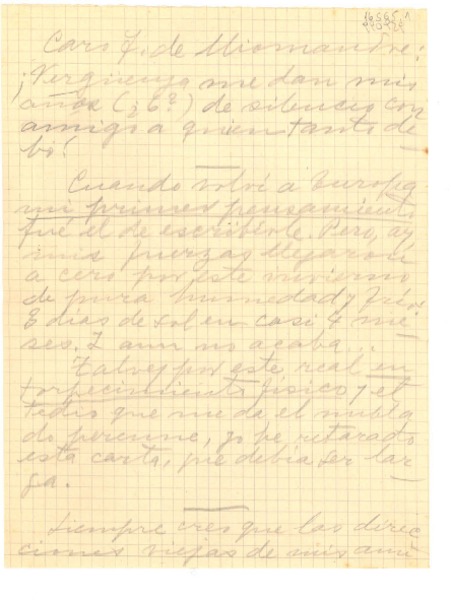 Caro F. de Miomandre:
¡Vergüenza me dan mis
años (¿6?) de silencio con
amigo a quien tanto de
bo!
Cuando volví a Europa
mi primer pensamiento
fué el de escribirle. Pero, ay
mis fuerzas llegaron
a cero por este invierno
de pura humedad y frío.
8 días de sol en casi 4 me
ses. I aun no acaba...
Talvez por este real en
torpecimiento físico y el
tedio que me da el nubla
do perenne, yo he retardado
esta carta, que debía ser lar
ga.
Siempre creo que las direc
ciones viejas de mis ami